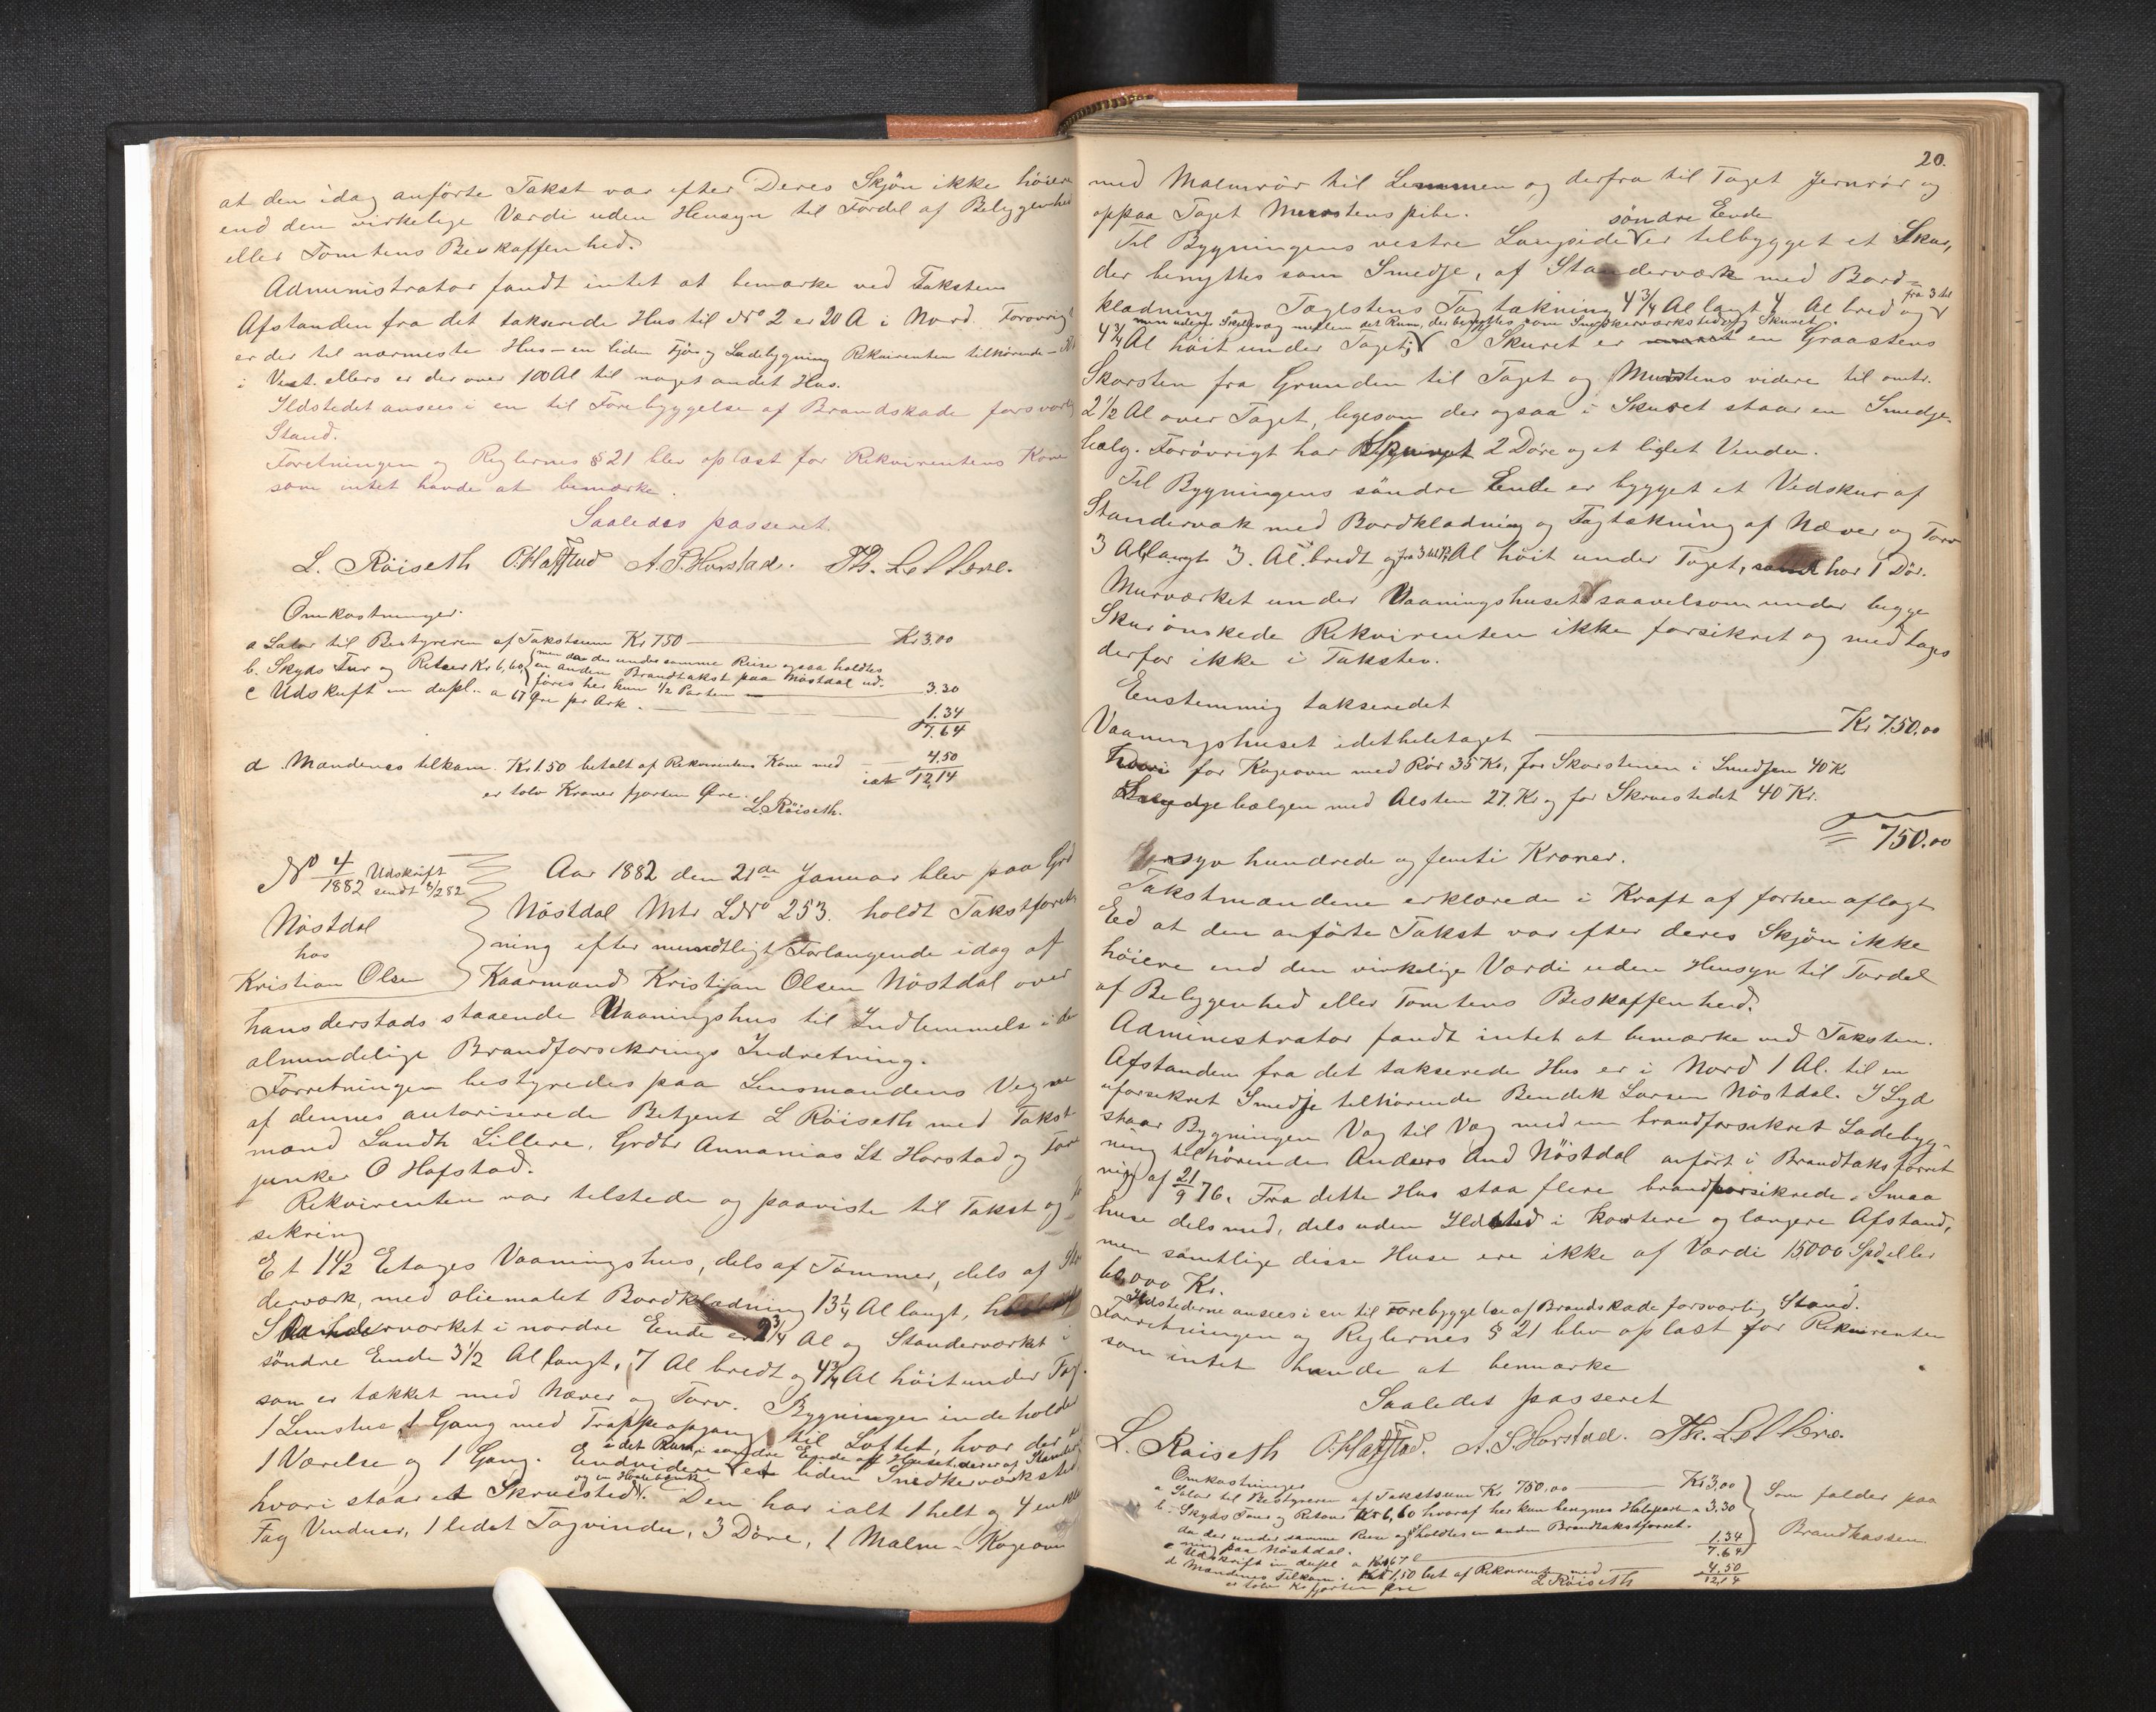 at den idag anførte Takst var efter Deres Skjøn ikke høiere
end den virkelige Værdi uden Hensyn til Fordel af Beliggenhed
eller Tomtens Beskaffenhed.
Administrator fandt intet at bemærke ved Taksten
Afstanden fra det takserede Hus til No 2 er 20 A i Nord. Forøvrigt
er der til nærmeste Hus – en liden Fjøs og Ladebygning Rekvirenten tilhørende –
i Vest. ellers er der over 100 Al til noget andet Hus.
Ildstedet ansees i en til Forebyggelse af Brandskade forsvarlig
Stand.
Forretningen og Reglernes § 21 blev oplæst for Rekvirentens Kone
som intet havde at bemærke.
Saaledes passeret
L. Röiseth O. Hafstad A. S. Horstad. Th. Lillere.
Omkostninger.
a Salær til Bestyreren af Takstsum Kr 750 — Kr 3.00
b. Skyds Tur og Retour Kr 6,60, men da der under samme Reise ogsaa holdtes
en anden Brandtakst paa Nöstdal ud-
føres her kun 1/2 Parten — 3.30
c Udskrift in dupl. a 67 Øre pr Ark. — 1.34
7.64
d Mændenes tilkom. Kr 1.50 betalt af Rekvirentens Kone med 4.50
ialt 12,14
er tolv Kroner fjorten Øre.
L. Röiseth.
No 4/1882 Udskrift
sendt 8/2 82
Nöstdal
hos
Kristian Olsen
Aar 1882 den 21de Januar blev paa Grd
Nöstdal Mtr LNo 253. holdt Takstforret-
ning efter mundtligt Forlangende idag af
Kaarmand Kristian Olsen Nöstdal over
hans dersteds staaende Vaaningshus til Indlemmelse i den
almindelige Brandforsikrings Indretning.
Forretningen bestyredes paa Lensmandens Vegne
af dennes autoriserede Betjent L Röiseth med Takst-
mænd Landh Lillere, Grdbr Annanias St Horstad og For
junker O Hafstad.
Rekvirenten var tilstede og paaviste til Takst og
sikring
Et 1 1/2 Etages Vaaningshus, dels af Tömmer, dels af
derværk, med oliemalet Bordklædning 13 1/4 Al langt,
Standerværket i nordre Ende er 2 3/4 Al og Standerværket i
söndre Ende 3 1/2 Al langt, 7 Al bredt og 4 3/4 Al höit under Tag.
som er tækket med Næver og Torv. Bygningen indeholder
1 Lemstue, 1 Gang med Trappeopgang til Loftet, hvor der
i det Rum i søndre Ende af Huset, der er af Stander
1 Værelse og 1 Gang. Endvidere et liden Snedkerværksted
og en Høvlebænk
hvori staar et Skruested. Den har ialt 1 helt og 4 enkle
Fag Vinduer, 1 lidet Tagvindu, 3 Döre, 1 Malm-Kogeovn
20.
med Malmrör til Lemmen og derfra til Taget Jernrör og
oppaa Taget Murstenspibe.
söndre Ende
Til Bygningens vestre Langside er tilbygget et Skur,
der benyttes som Smedje, af Standerværk med Bord-
fra 3 til
klædning og Taglstens Tagtækning 4 3/4 Al langt 4 Al bred og
men uden Skillevæg mellem det Rum, der benyttes som Snedkerværksted og Skuret.
4 3/4 Al höit under Taget; I Skuret er en Graastens
Skorsten fra Grunden til Taget og Murstens videre til omtr.
2 1/2 Al over Taget, ligesom der ogsaa i Skuret staar en Smedje-
bælg. Forövrigt har 2 Döre og et lidet Vindu.
Til Bygningens söndre Ende er bygget et Vedskur af
Standerværk med Bordklædning og Tagtækning af Næver og Torv
3 Al langt 3. Al. bredt og fra 3 til Al höit under Taget, har 1 Dör.
Murværket under Vaaningshuset saavelsom under begge
Skur önskede Rekvirenten ikke forsikret og medtages
derfor ikke i Taksten.
Eenstemmig takseredet
Vaaningshuset idetheletaget — Kr 750.00
Hvori for Kogeovn med Rör 35 Kr, for Skorstenen i Smedjen 40 Kr
Smedgebælgen med Alsten 27. Kr og for Skruestedet 40 Kr.
= 750.00
er syv hundrede og femti Kroner.
Takstmændene erklærede i Kraft af forhen aflagt
Eed at den anförte Takst var efter deres Skjön ikke
höiere end den virkelige Værdi uden Hensyn til Fordel
af Beliggenhed eller Tomtens Beskaffenhed.
Administrator fandt intet at bemærke ved Taksten.
Afstanden fra det takserede Hus er i Nord 1 Al. til en
uforsikret Smedje tilhörende Bendik Larsen Nöstdal. I Syd
staar Bygningen Væg til Væg med en brandforsikret Ladebyg-
ning tilhörende Anders And Nöstdal anfört i Brandtakstforret
ning af 21/9 76. Fra dette Hus staa flere brandforsikrede Smaa
huse dels med, dels uden Ildsted i kortere og længere Afstand,
men samtlige disse Huse ere ikke af Værdi 15000 Spd eller
60,000 Kr.
Ildstederne ansees i en til Forebyggelse af Brandskade forsvarlig Stand.
Forretningen og Reglernes § 21 blev oplæst for Rekvirenten
som intet havde at bemærke
Saaledes passeret
L. Röiseth O. Hafstad. A. S. Horstad. Th. Lillere.
Omkostninger
a Salær til Bestyreren af Takstsum Kr 750.00 — Kr 3,00
b. Skyds Tour og Retour Kr 6,60 hvoraf her kun beregnes Halvparten 3.30
da der under samme Reise og holdtes en anden Brandtakstforret-
ning paa Nöstdal.
c Udskrift in dupl a Kr 67 — 1.34
7.64
Som falder paa
Brandkassen.
d Mændenes Tilkom. Kr 1,50 bet af Rekvirenten med 4.50
12,14
er tolv Kr fjorten øre
L Röiseth